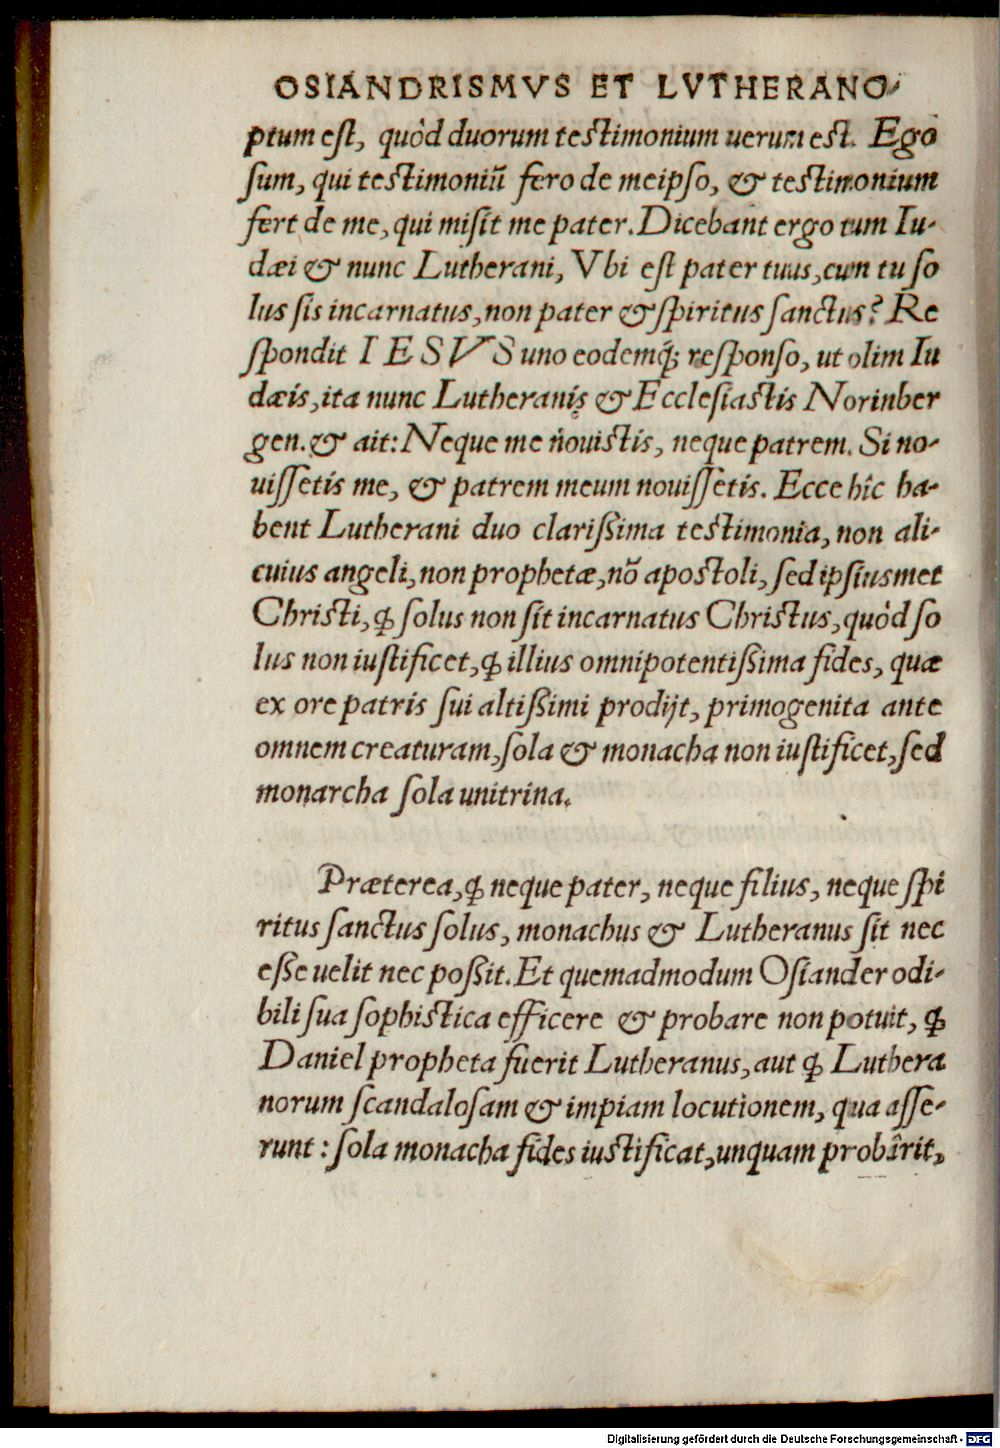 OSIANDRISMVS ET LVTHERANO-
ptum est, quòd duorum testimonium uerum est. Ego
sum, qui testimoniũ fero de meipso, & testimonium
fert de me, qui misit me pater. Dicebant ergo tum Iu-
dæi & nunc Lutherani, Vbi est pater tuus, cum tu so
lus sis incarnatus, non pater & spiritus sanctus? Re
spondit IESVS uno eodemq́; responso, ut olim Iu
dæis, ita nunc Lutheranis & Ecclesiastis Norinber
gen. & ait: Neque me nouistis, neque patrem. Si no-
uissetis me, & patrem meum nouissetis. Ecce hîc ha-
bent Lutherani duo clarißima testimonia, non ali-
cuius angeli, non prophetæ, nõ apostoli, sed ipsiusmet
Christi, ꝙ solus non sit incarnatus Christus, quòd so
lus non iustificet, ꝙ illius omnipotentißima fides, quæ
ex ore patris sui altißimi prodijt, primogenita ante
omnem creaturam, sola & monacha non iustificet, sed
monarcha sola unitrina.
Præterea, ꝙ neque pater, neque filius, neque spi
ritus sanctus solus, monachus & Lutheranus sit nec
eße uelit nec poßit. Et quemadmodum Osiander odi-
bili sua sophistica efficere & probare non potuit, ꝙ
Daniel propheta fuerit Lutheranus, aut ꝙ Luthera
norum scandalosam & impiam locutionem, qua asse-
runt: sola monacha fides iustificat, unquam probârit,
Digitalisierung gefördert durch die Deutsche Forschungsgemeinschaft - DFG